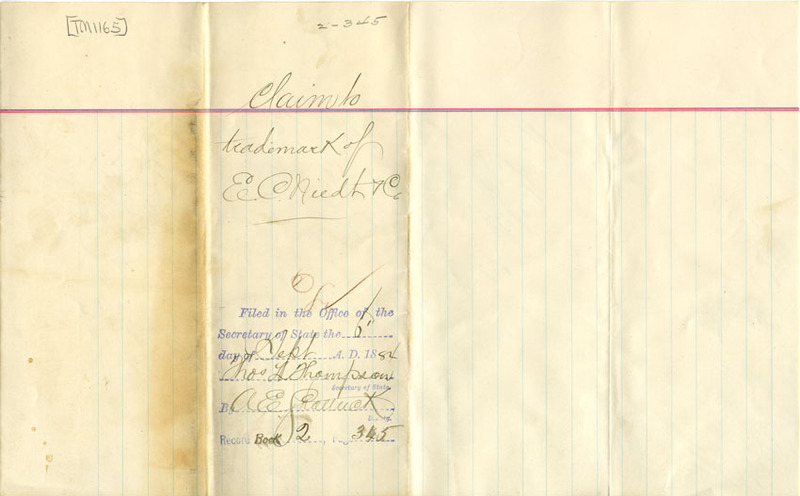 [TM1165]
2-345
Claim to
trademark of
E. C. Niedt & Co
OK
Filed in the Office of the
Secretary of State the 6"
day of Sept A. D. 1884
Thos L Thompson
Secretary of State.
By A E
Deputy.
Record Book 2, Page 345